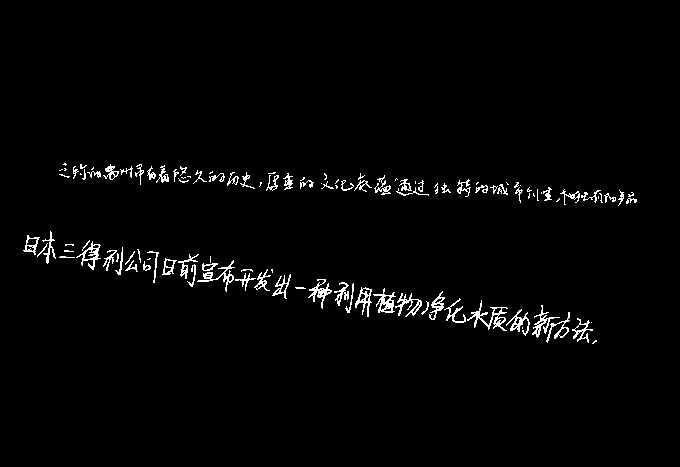 之称的常州市有着悠久的历史，厚重的文化底蕴通过独特的城市创意
日本三得利公司日前宣布开发出一种利用植物净化水质的新方法，